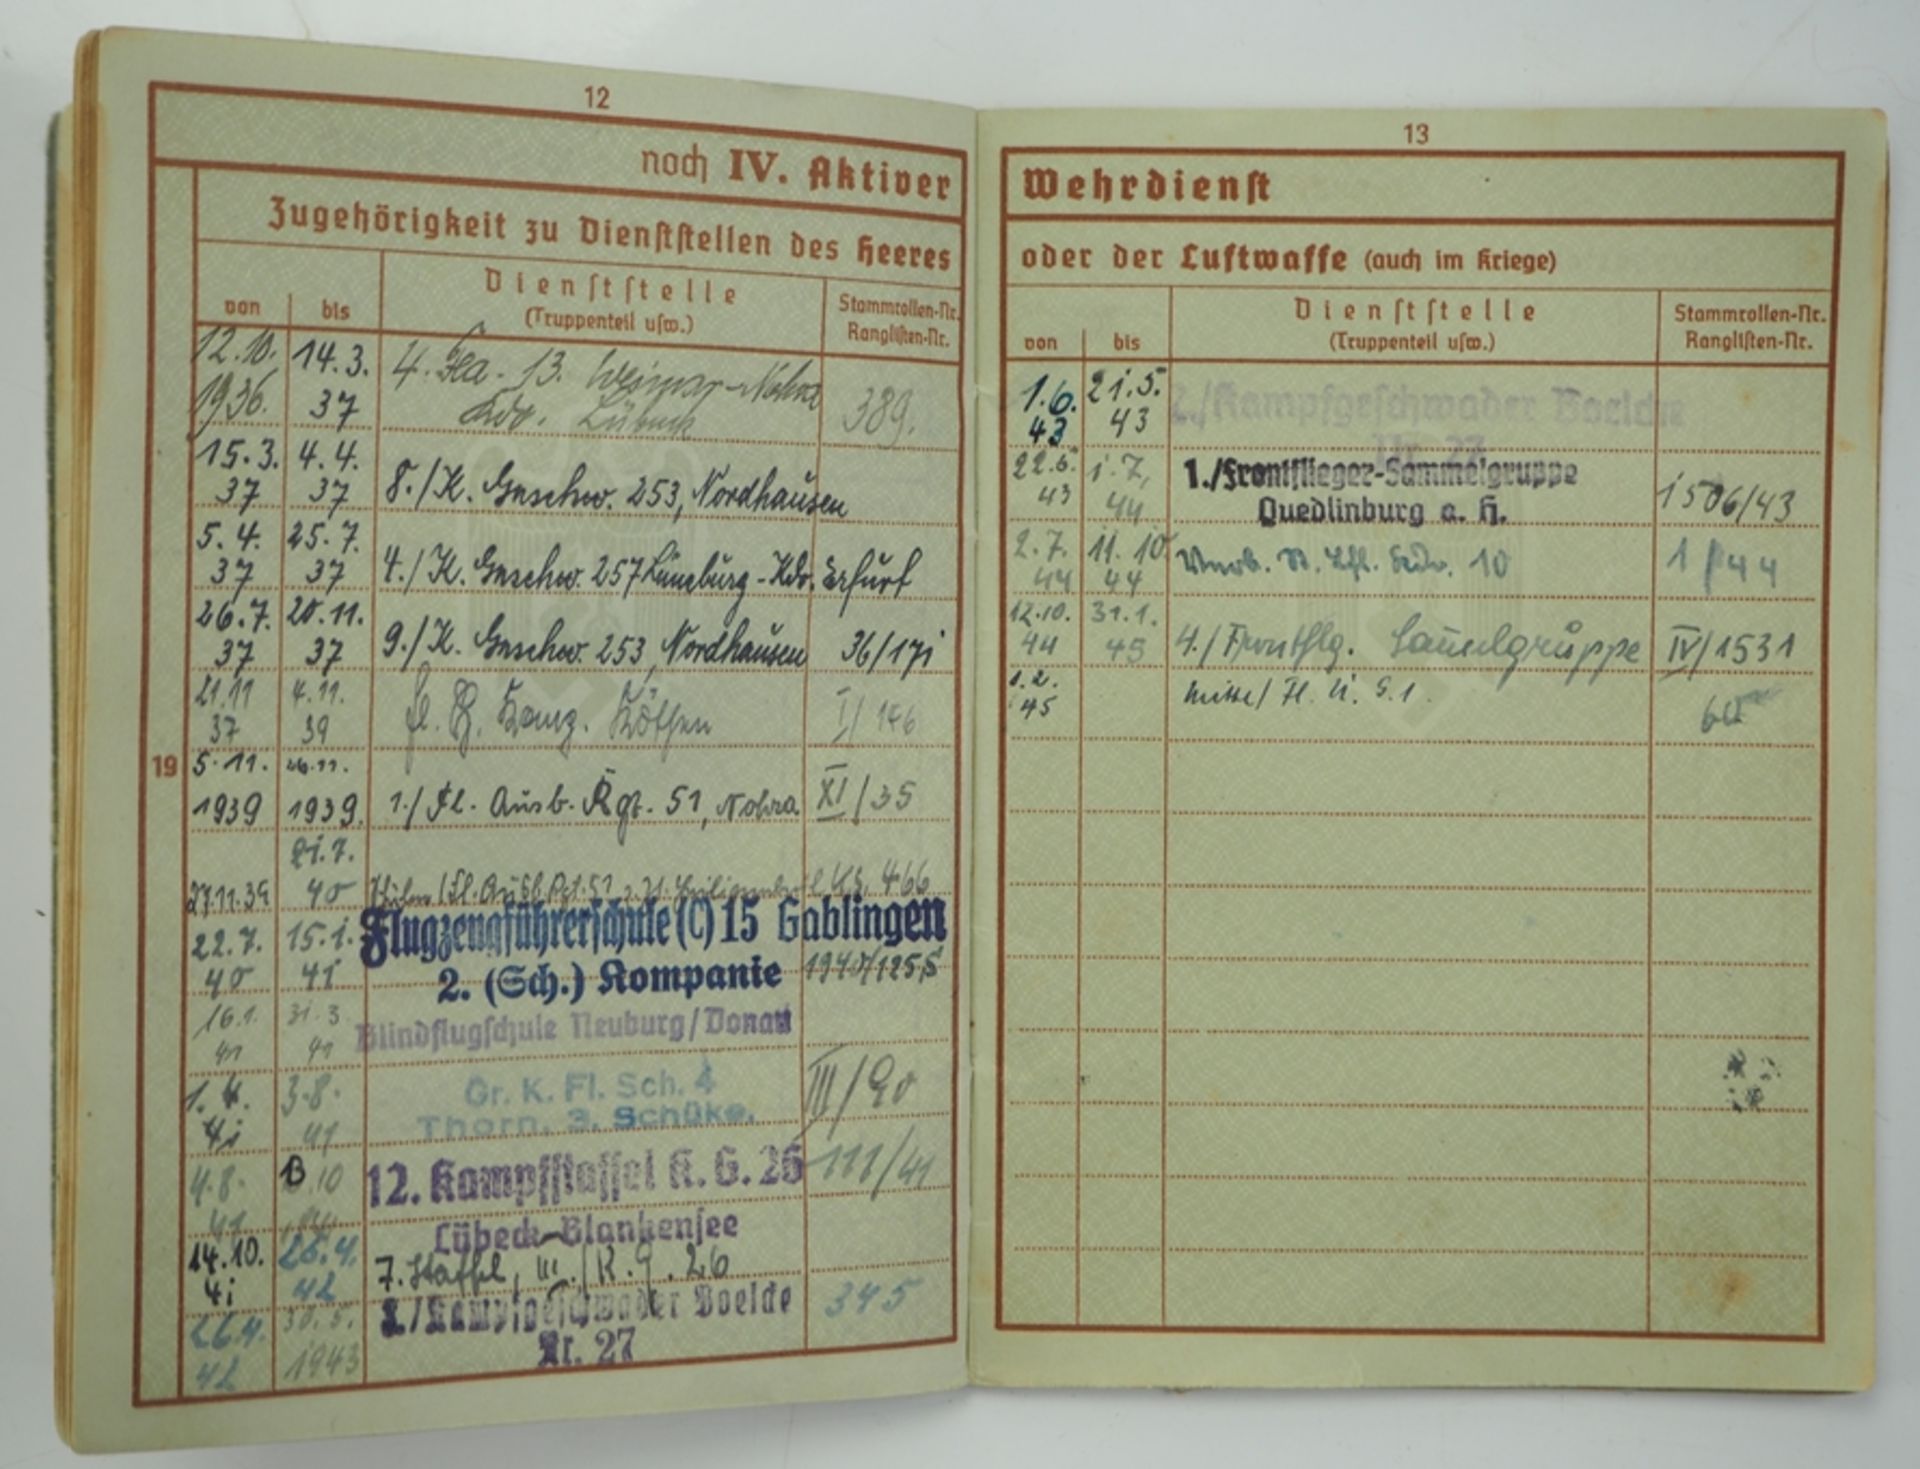 12
noch IV. Aktiver
Zugehörigkeit zu Dienststellen des Heeres
von bis Dienststelle (Truppenteil usw.) Stammrollen-Nr. Ranglisten-Nr.
12.10. 14.3. 4. 13. Weimar-Nohra
1936. 37 Lübeck 389.
15.3. 4.4.
37 37 8./K. Geschw. 253, Nordhausen
5.4. 25.7.
37 37 4./K. Geschw. 257 Lüneburg - Kdo. Erfurt
26.7. 20.11.
37 37 9./K. Geschw. 253, Nordhausen 36/171
21.11 4.11.
37 39 Köthen I/146
19
5.11. 26.11.
1939 1939. 1./Fl. Ausb. Rgt. 51, Nohra XI/35
21.7.
27.11.39 40 Fl. Ausb. Rgt. 51 466
22.7. 15.1. Flugzeugführerschule (C) 15 Gablingen
40 41 2. (Sch.) Kompanie 1940/1255
16.1. 31.3. Blindflugschule Neuburg/Donau
41 41
1.4. 3.8. Gr. K. Fl. Sch. 4 III/90
41 41 Thorn, 3. Schüko.
4.8. 13.10 12. Kampfstaffel K.G. 26 111/41
41 Lübeck-Blankensee
14.10. 26.4. 7. Staffel, III./K.G. 26
41 42
26.4. 30.5. 2./Kampfgeschwader Boelcke 345
42 1943 Nr. 27
13
Wehrdienst
oder der Luftwaffe (auch im Kriege)
von bis Dienststelle (Truppenteil usw.) Stammrollen-Nr. Ranglisten-Nr.
1.6. 21.5. 2./Kampfgeschwader Boelcke
43 43 Nr. 27
22.5. 1.7. 1./Frontflieger-Sammelgruppe
43 44 Quedlinburg a. H. 1506/43
2.7. 11.10. 10 1/44
44 44
12.10. 31.1.
44 45 4./Frontflg. Sammelgruppe IV/1531
1.2.
45